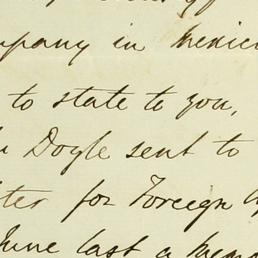 of
mpany in Mexico
to state to you,
Doyle sent to
ter for Foreign
June last a Memo